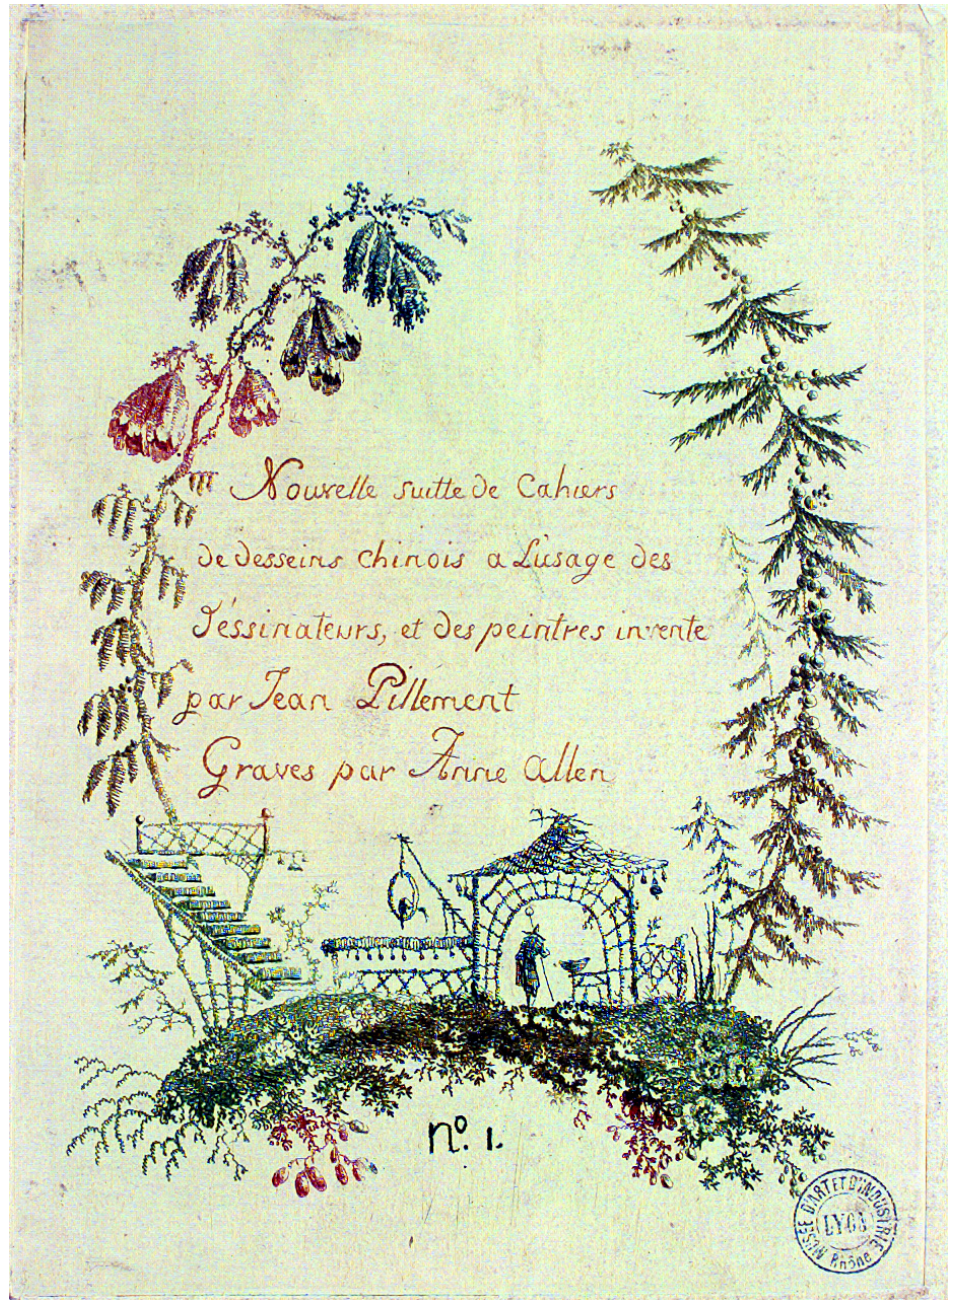 Nouvelle suitte de Cahiers
de desseins chinois a L'usage des
Déssinateurs, et des peintres invente
par Jean Pillement
Graves par Anne Allen
nº. 1.
MUSÉE D'ART ET D'INDUSTRIE
LYON
Rhône